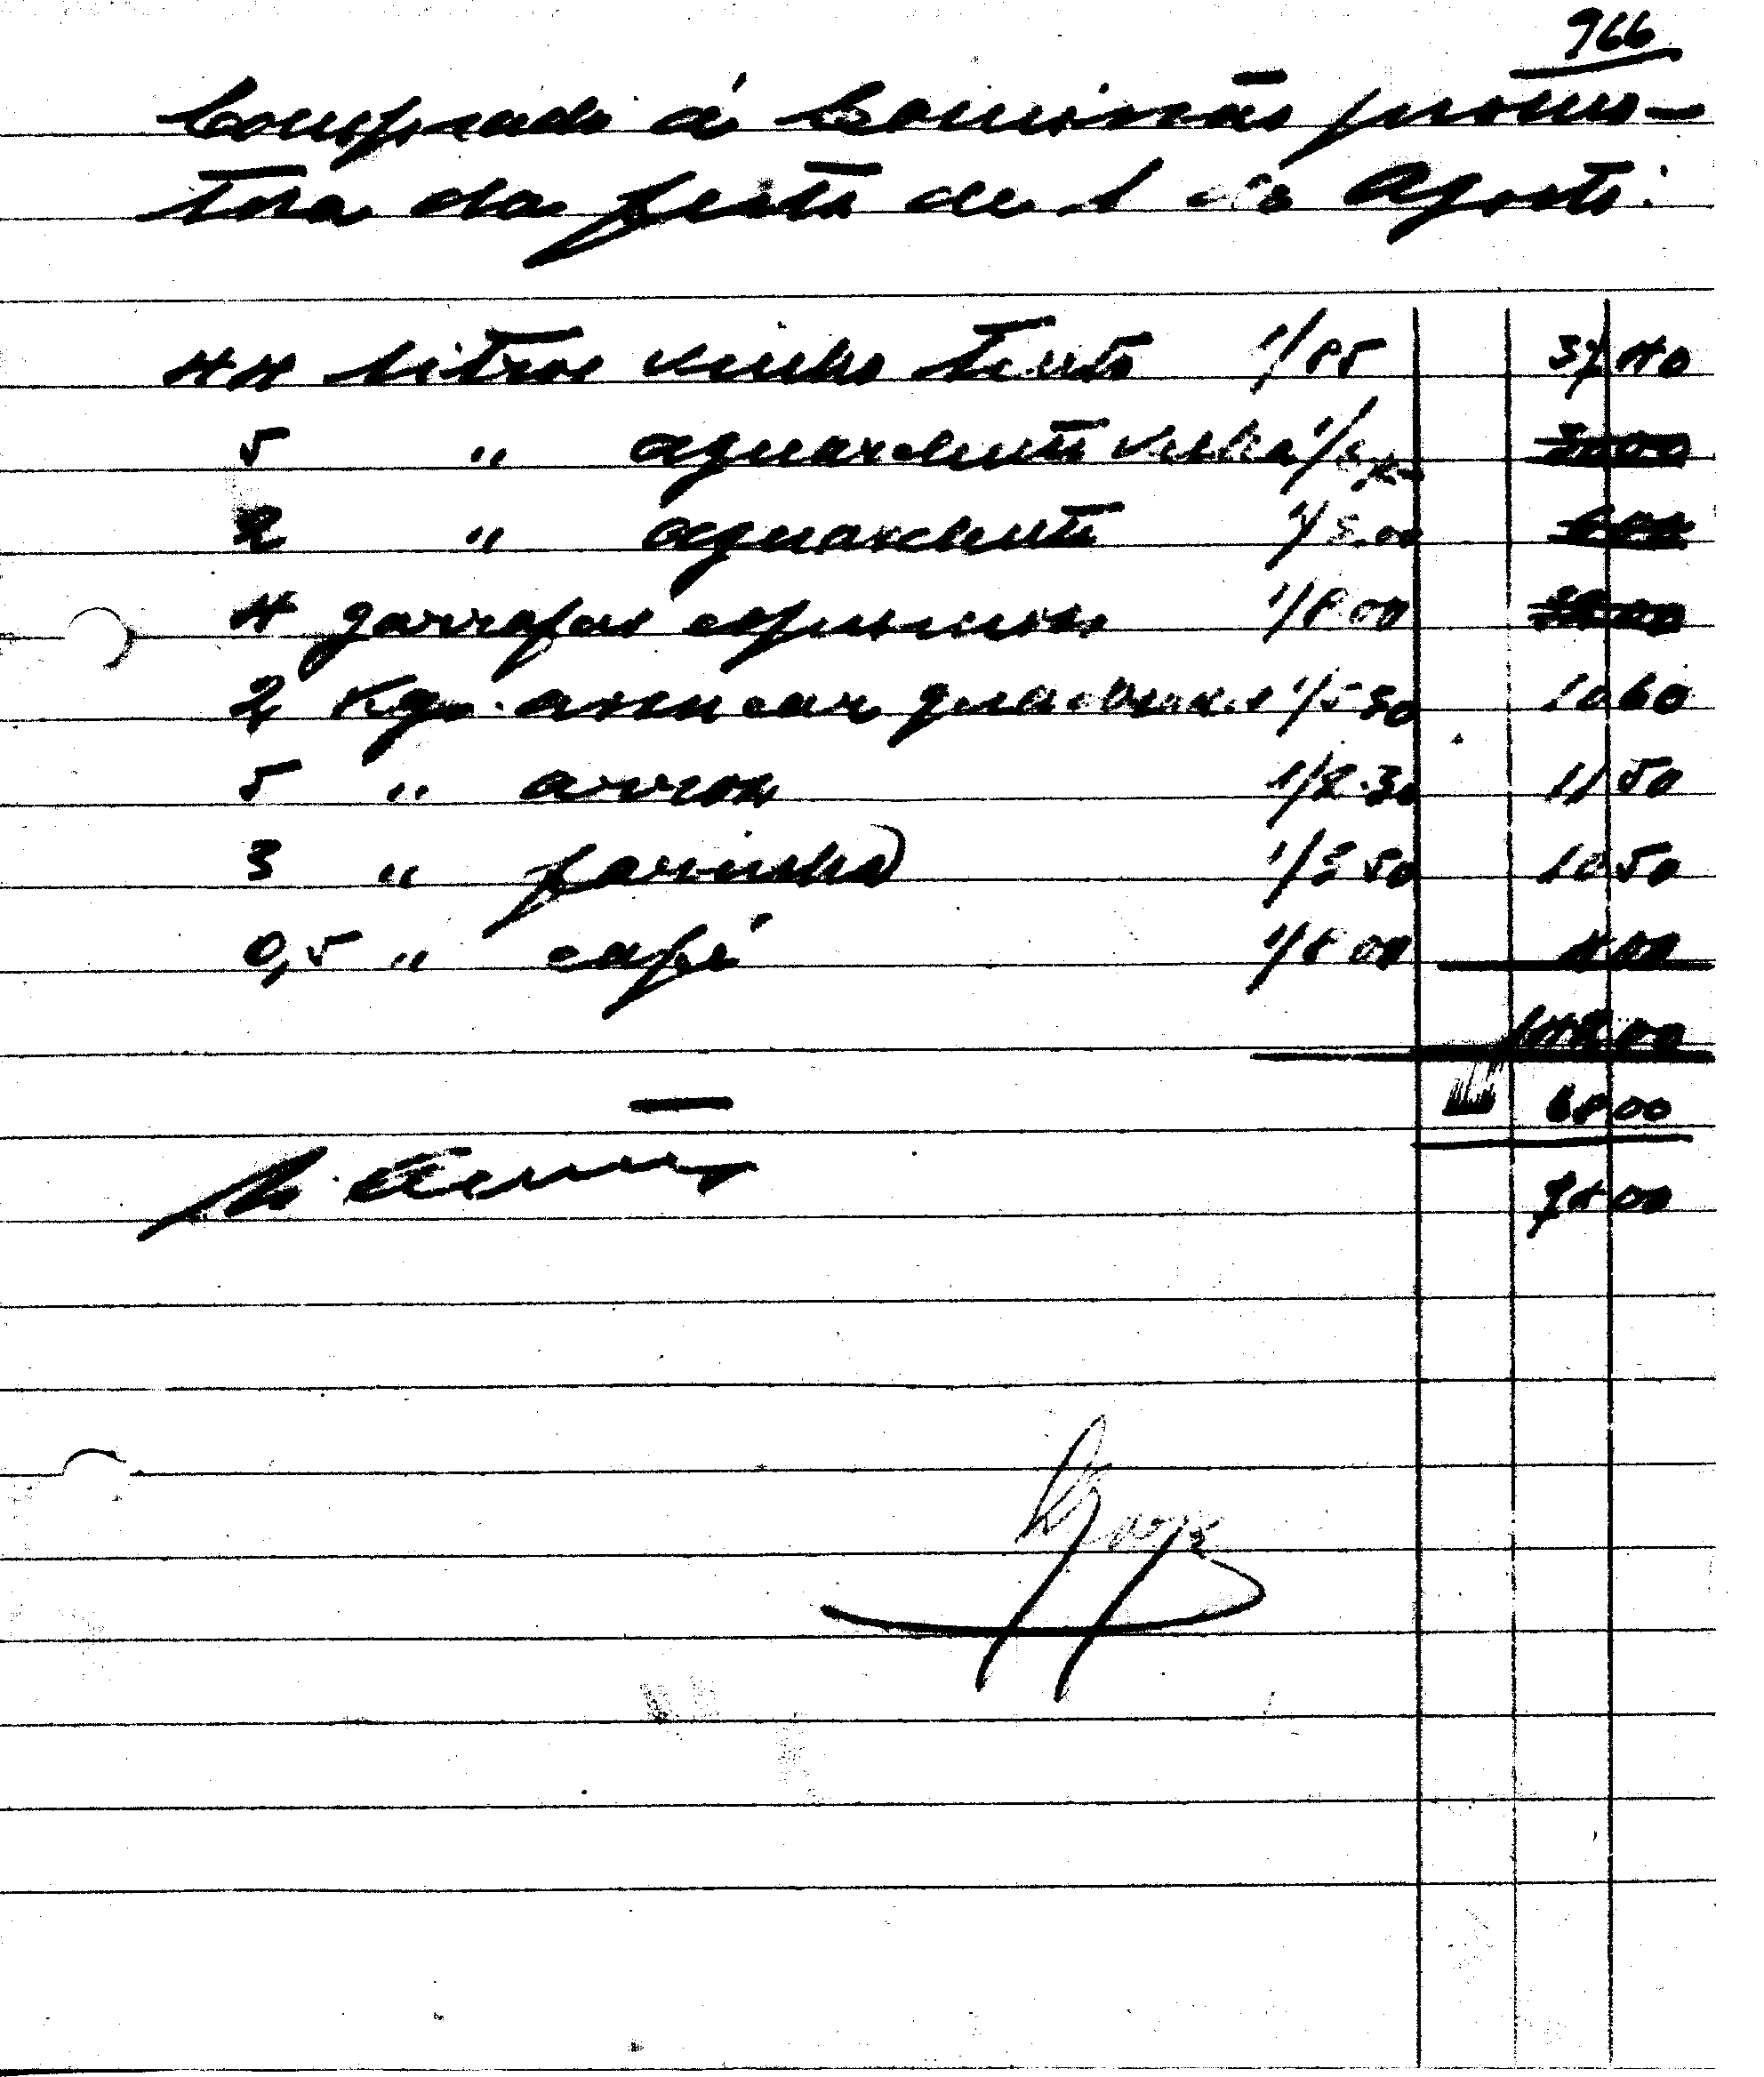 966
Comprado á Comissão promo-
tora da festa de 1 de Agosto:
44 litros vinho tinto 1/85 37 40
5 " aguardente velha 1/6 3000
2 " aguardente 1/3.00 600
4 garrafas espumoso 1/8 00 3200
2 Kgs. assucar quadrado 1/5 30 10 60
5 " arroz 1/2.30 11 50
3 " farinha 1/3 50 10 50
0,5 " café 1/8 00 4 00
142 00
68 00
74 00